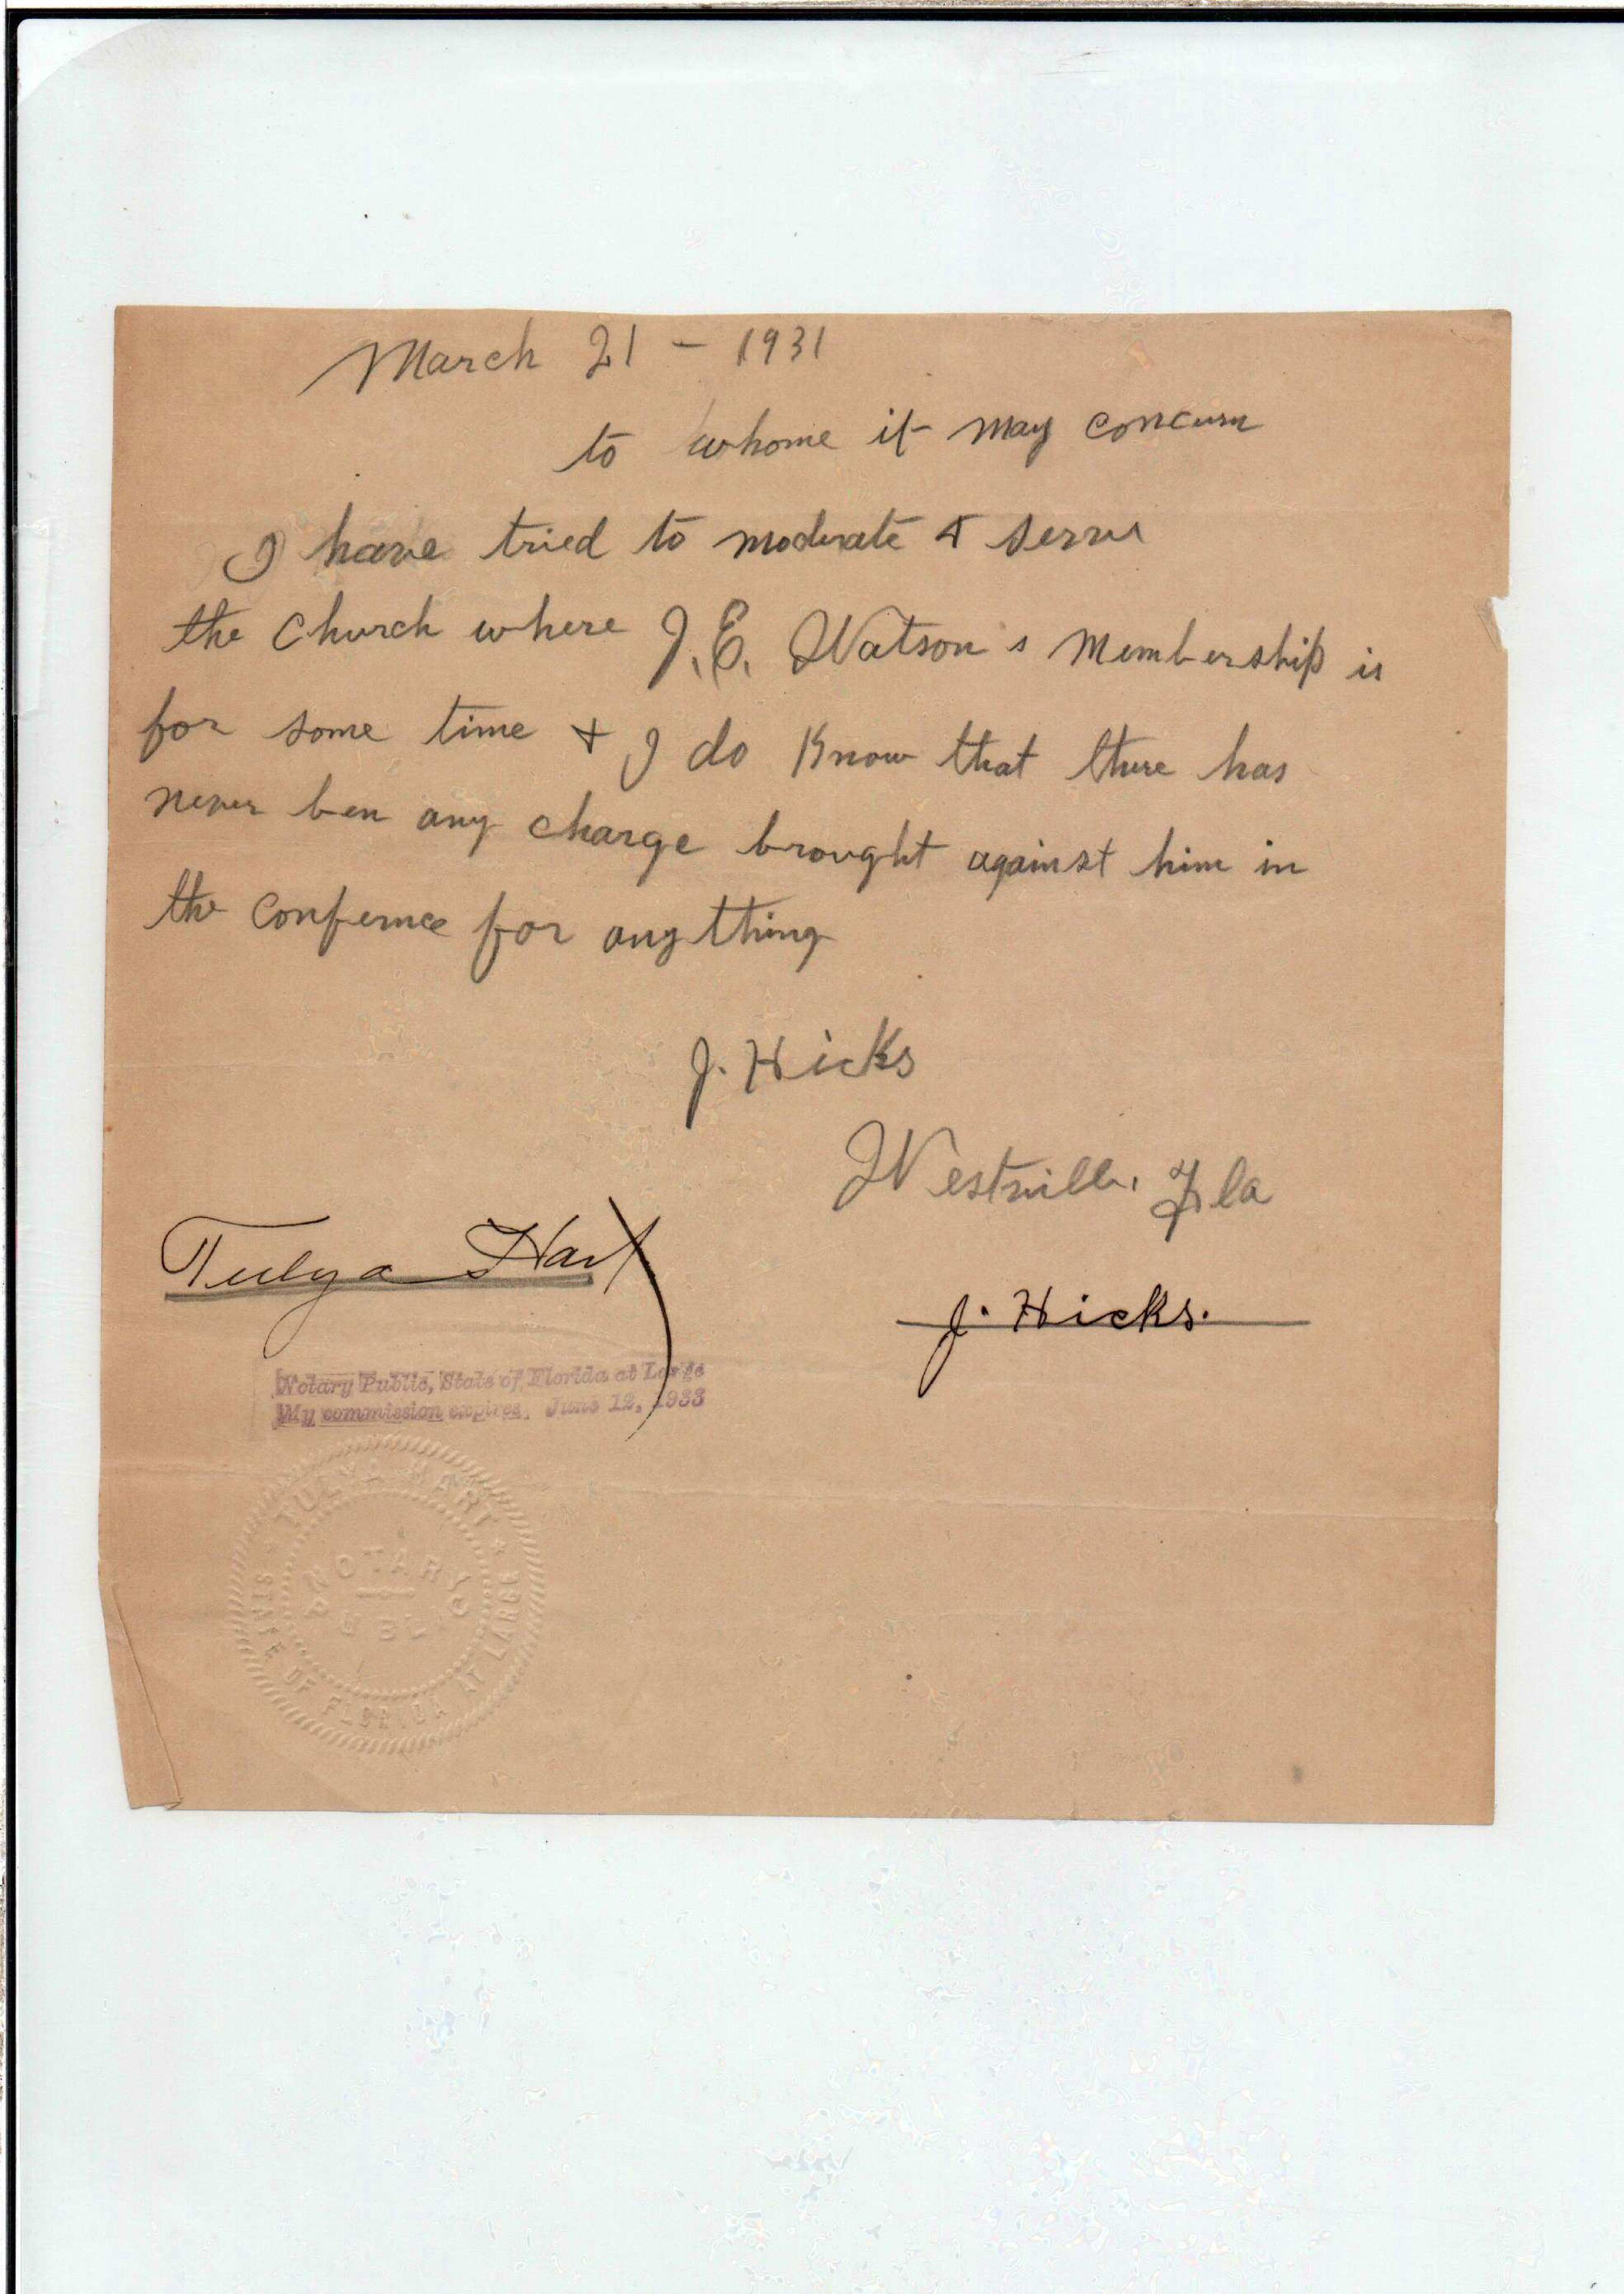 March 21 - 1931
to whome it may concern
I have tried to moderate & serve
the Church where J.E. Watson's Membership is
for some time & I do Know that there has
never ben any charge brought against him in
the Confernce for any thing
J. Hicks
Westville, Fla
Tulya Hart
J. Hicks.
Notary Public, State of Florida at Large
My commission expires June 12, 1933
HART
NOTARY
PUBLIC
STATE OF FLORIDA AT LARGE